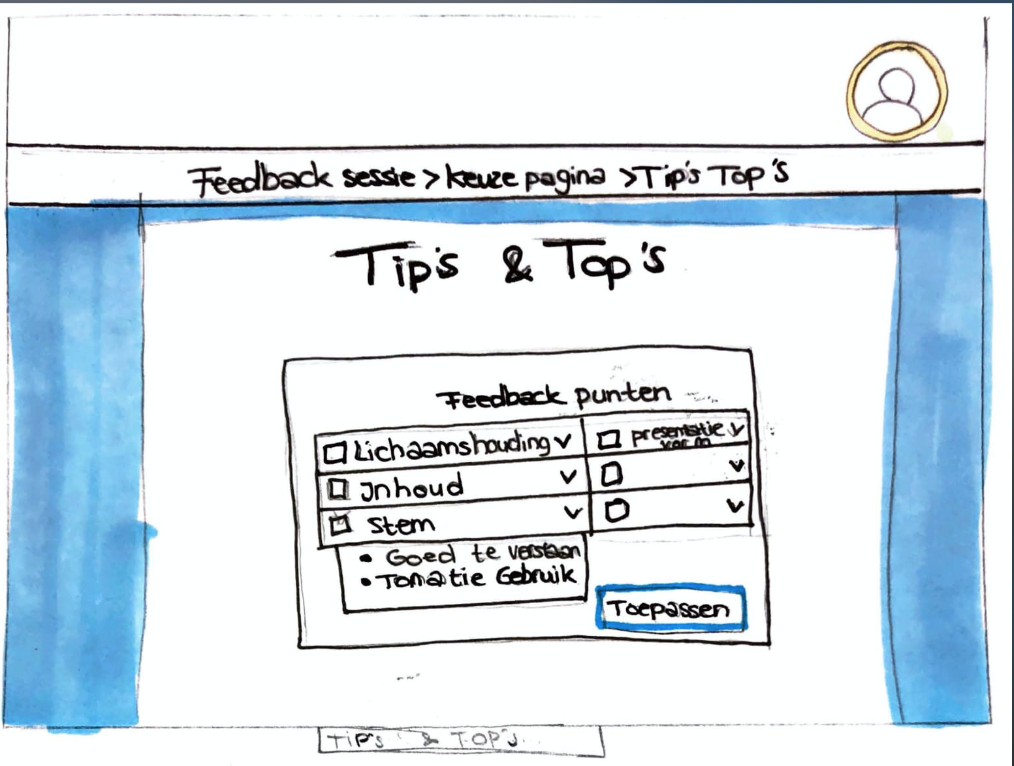 Feedback sessie > keuze pagina > Tip's Top's
Tip's & Top's
Feedback punten
Lichaamshouding
presentatie
vorm
Inhoud
Stem
• Goed te verstaan
• Tonatie Gebruik
Toepassen
TIP'S & TOP'S